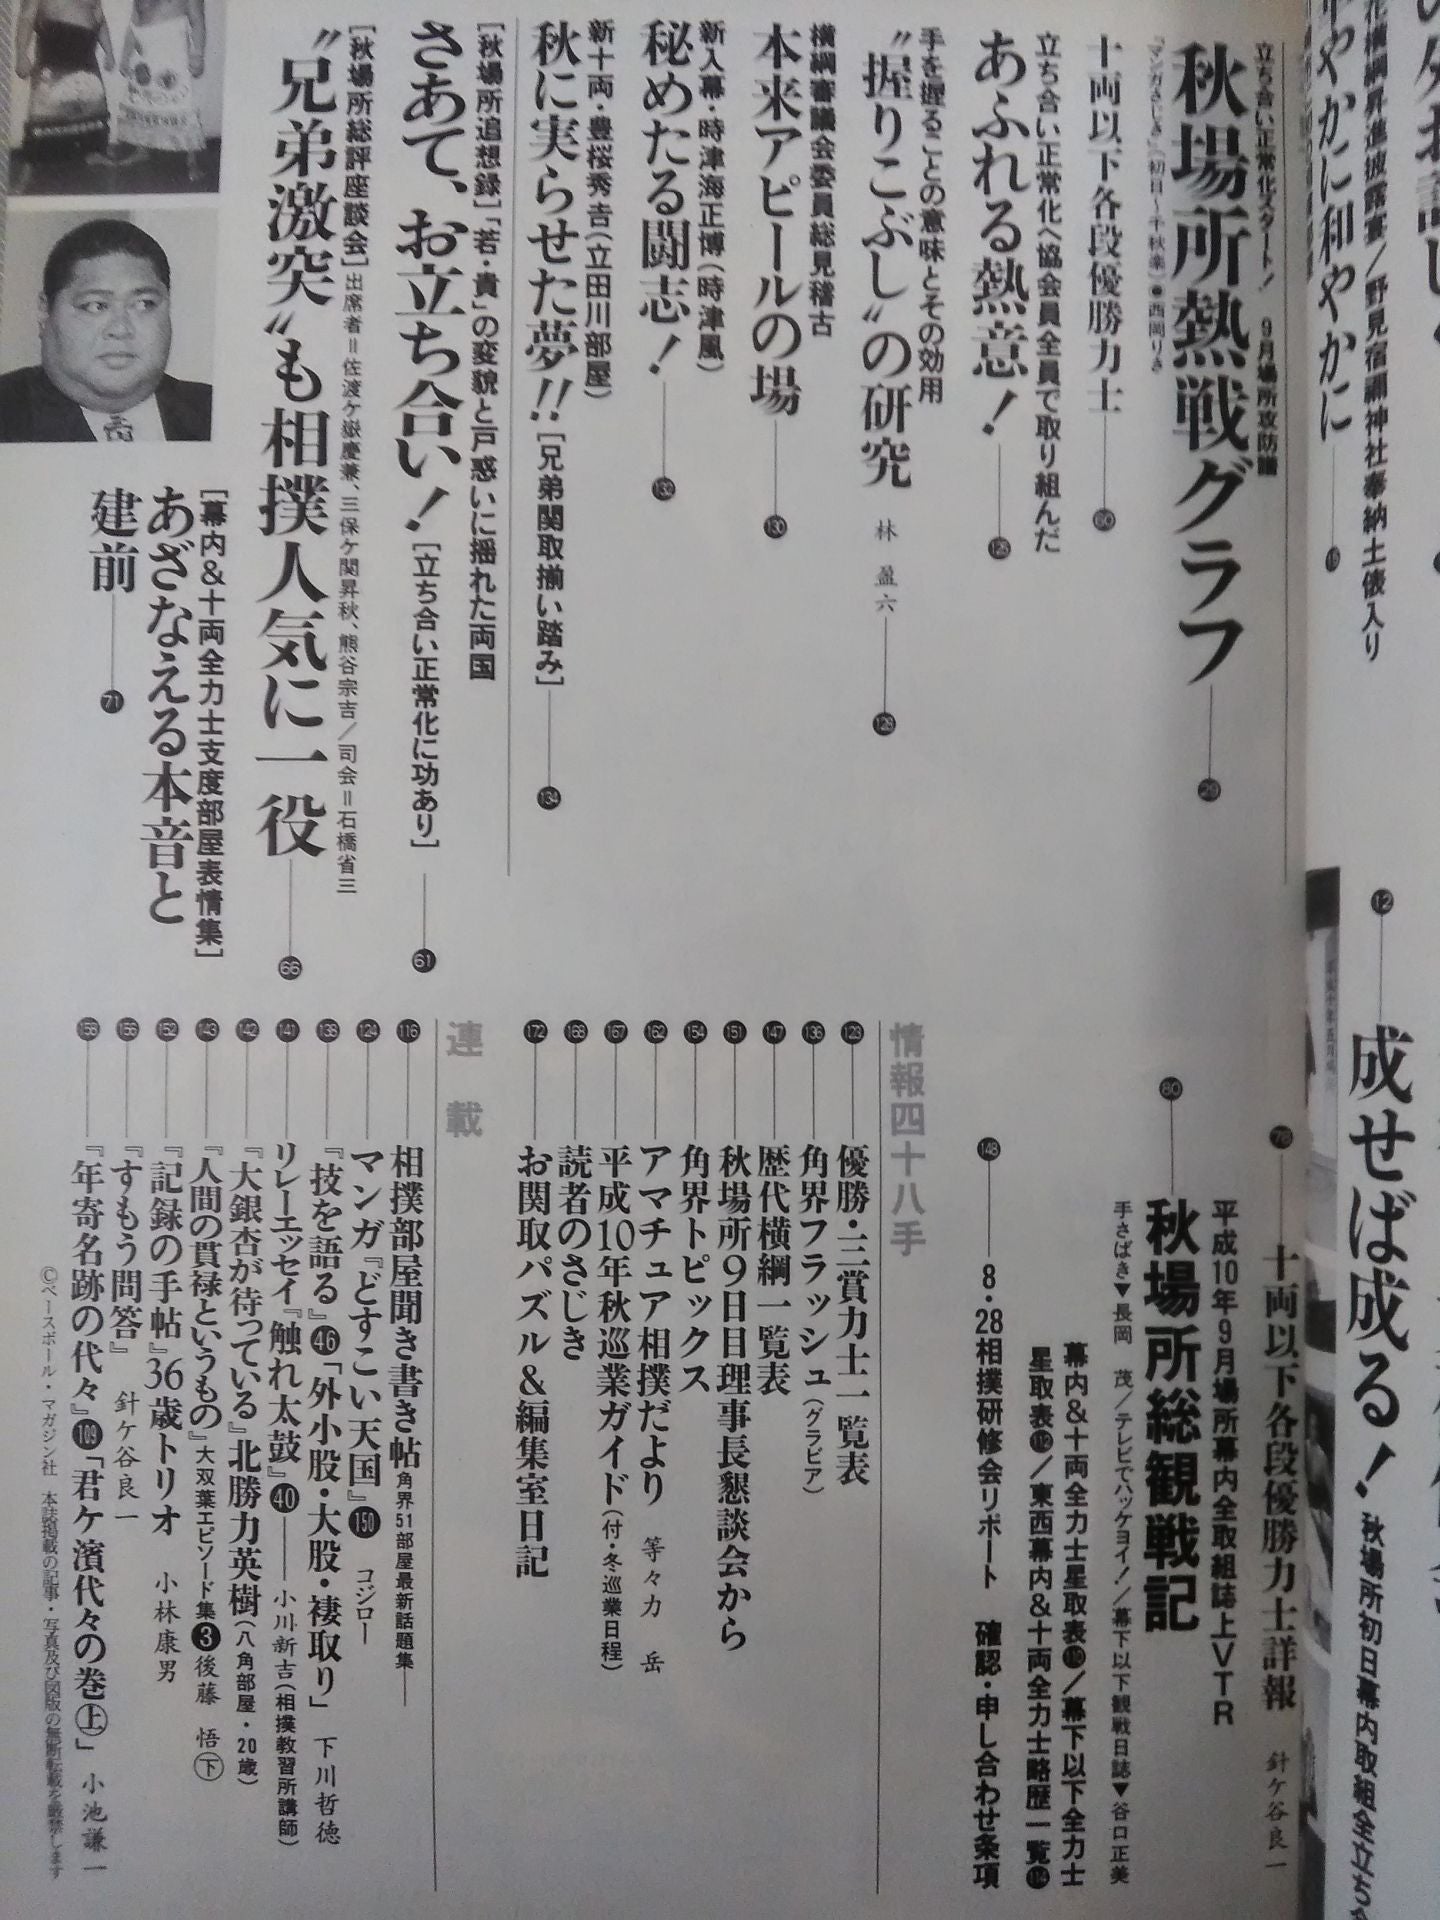 成せば成る！
秋場所初日幕内取組全立ち
12
横綱昇進披露宴／野見宿禰神社奉納土俵入り
やかに和やかに
立ち合い正常化スタート！　9月場所攻防譜
秋場所熱戦グラフ
29
『マンガさじき』（初日〜千秋楽）●西岡りき
十両以下各段優勝力士
60
立ち合い正常化へ協会員全員で取り組んだ
あふれる熱意！
126
手を握ることの意味とその効用
〝握りこぶし〟の研究　林　盈六
128
横綱審議会委員総見稽古
本来アピールの場
130
新入幕・時津海正博（時津風）
秘めたる闘志！
132
新十両・豊桜秀吉（立田川部屋）
秋に実らせた夢!!［兄弟関取揃い踏み］
134
［秋場所追想録］「若・貴」の変貌と戸惑いに揺れた両国
さあて、お立ち合い！［立ち合い正常化に功あり］
61
［秋場所総評座談会］出席者＝佐渡ケ嶽慶兼、三保ケ関昇秋、熊谷宗吉／司会＝石橋省三
〝兄弟激突〟も相撲人気に一役
66
［幕内＆十両全力士支度部屋表情集］
あざなえる本音と
建前
71
78
十両以下各段優勝力士詳報　針ケ谷良一
平成10年9月場所幕内全取組誌上VTR
80
秋場所総観戦記
手さばき▼長岡　茂／テレビでハッケヨイ！／幕下以下観戦日誌▼谷口正美
幕内＆十両全力士星取表110／幕下以下全力士
星取表112／東西幕内＆十両全力士略歴一覧114
148
8・28相撲研修会リポート　確認・申し合わせ条項
情報四十八手
123 優勝・三賞力士一覧表
136 角界フラッシュ（グラビア）
147 歴代横綱一覧表
151 秋場所9日目理事長懇談会から
154 角界トピックス
162 アマチュア相撲だより　等々力　岳
167 平成10年秋巡業ガイド（付・冬巡業日程）
168 読者のさじき
172 お関取パズル＆編集室日記
連載
116 相撲部屋聞き書き帖 角界51部屋最新話題集
124 マンガ『どすこい天国』150　コジロー
138 『技を語る』46「外小股・大股・褄取り」　下川哲徳
141 リレーエッセイ『触れ太鼓』40　小川新吉（相撲教習所講師）
142 『大銀杏が待っている』北勝力英樹（八角部屋・20歳）
143 『人間の貫禄というもの』大双葉エピソード集3　後藤　悟 下
152 『記録の手帖』36歳トリオ　小林康男
156 『すもう問答』　針ケ谷良一
158 『年寄名跡の代々』109「君ケ濱代々の巻上」　小池謙一
©ベースボール・マガジン社　本誌掲載の記事・写真及び図版の無断転載を厳禁します